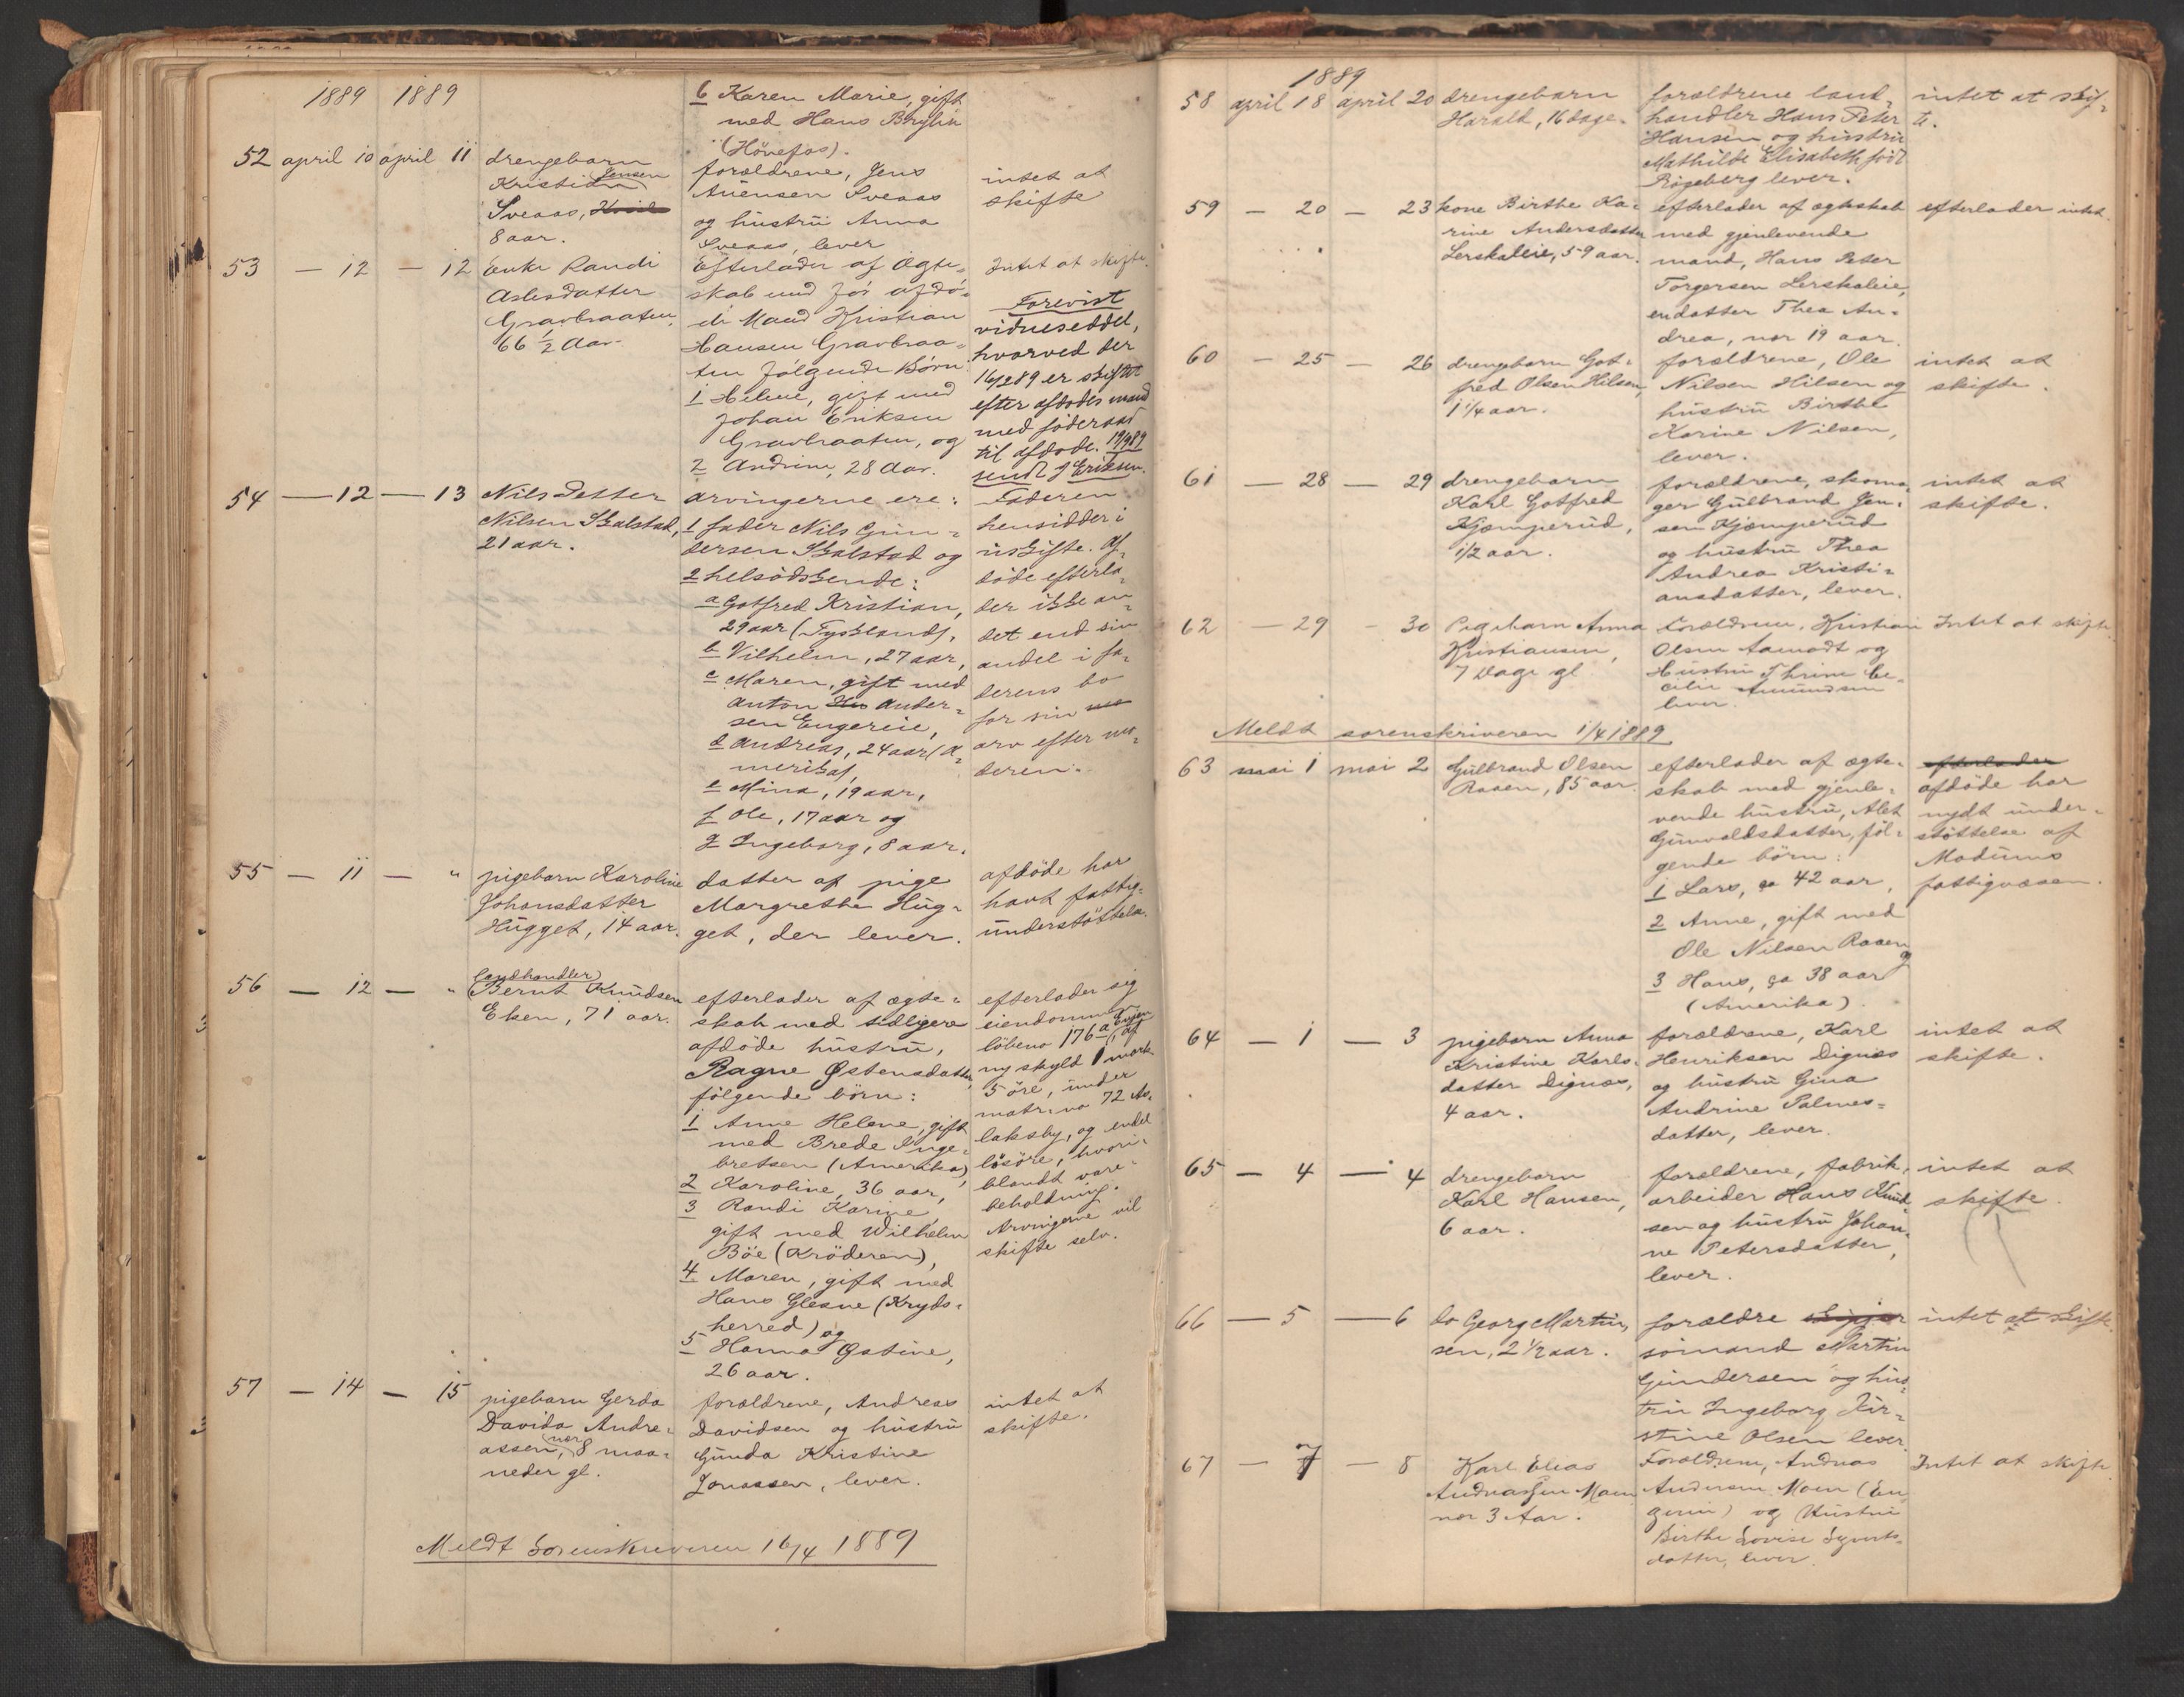 1889 1889
6 Karen Marie, gift
med Hans
(Hönefos).
52 april 10 april 11
drengebarn
Kristian Jensen
Sveaas,
8 aar.
forældrene, Jens
Sveaas
og hustru Anna
Sveaas, lever
intet at
skifte
53 — 12 — 12
Enke Randi
Aslesdatter
Gravbraaten,
66 1/2 Aar.
Efterlader af Ægte-
skab med før afdø-
de Mand Kristian
Hansen Gravbraa-
ten følgende Børn:
1 Helene, gift med
Johan Eriksen
Gravbraaten, og
2 Andrine, 28 Aar.
Intet at skifte.
Forevist
vidneseddel,
hvorved der
16/2 89 er skiftet
efter afdødes mand
med föderaad
til afdøde. 19/9 89
sendt J Eriksen.
54 — 12 — 13
Nils Petter
Nilsen Skalstad,
21 aar.
arvingerne ere:
1 fader Nils Gun-
dersen Skalstad og
2 helsödskende:
a Gotfred Kristian,
29 aar (Tyskland),
b Vilhelm, 27 aar,
c Maren, gift med
Anton Ander-
sen Engereie,
d Andreas, 24 aar (A-
merika),
e Mina, 19 aar,
f Ole, 17 aar og
g Ingeborg, 8 aar.
Faderen
hensidder i
uskifte. Af-
døde efterla-
der ikke an-
det end sin
andel i fa-
derens bo
for sin
arv efter mo-
deren.
55 — 11 — "
pigebarn Karoline
Johansdatter
Hugget, 14 aar.
datter af pige
Margrethe Hug-
get, der lever.
afdöde har
havt fattig-
understöttelse.
56 — 12 — "
landhandler
Bernt Knudsen
Eken, 71 aar.
efterlader af ægte-
skab med tidligere
afdöde hustru,
Ragne Østensdatter,
fölgende börn:
1 Anne Helene, gift
med Brede Inge-
bretsen (Amerika),
2 Karoline, 36 aar,
3 Randi Karine,
gift med Wilhelm
Böe (Kröderen),
4 Maren, gift med
Hans Glesne (Kryds-
herred) og
5 Hanna Østine,
26 aar.
efterlader sig
eiendommen
löbeno 176 a Engen, af
ny skyld 1 mark
5 öre, under
matr. no 72 As-
laksby, og endel
lösöre, hvori-
blandt vare-
beholdning.
Arvingerne vil
skifte selv.
57 — 14 — 15
pigebarn Gerda
Davida Andre-
assen, nær 8 maa-
neder gl.
forældrene, Andreas
Davidsen og hustru
Gunda Kristine
Jonassen, lever.
intet at
skifte.
Meldt Sorenskriveren 16/4 1889
1889
58 april 18 april 20
drengebarn
Harald, 16 dage.
forældrene land-
handler Hans Peter
Hansen og hustru
Mathilde Elisabeth född
Rögeberg lever.
intet at skif-
te.
59 — 20 — 23
kone Birthe Ka-
rine Andersdatter
Lerskaleie, 59 aar.
efterlader af ægteskab
med gjenlevende
mand, Hans Peter
Torgersen Lerskaleie,
en datter Thea An-
drea, nær 19 aar.
efterlader intet.
60 — 25 — 26
drengebarn Got-
fred Olsen Hilsen,
1 1/4 aar.
forældrene, Ole
Nilsen Hilsen og
hustru Birthe
Karine Nilsen,
lever.
intet at
skifte.
61 — 28 — 29
drengebarn
Karl Gotfred
Kjæmperud,
1/2 aar.
forældrene, skoma-
ger Gulbrand Jen-
sen Kjæmperud
og hustru Thea
Andrea Kristi-
ansdatter, lever.
intet at
skifte.
62 — 29 — 30
Pigebarn Anna
Kristiansen,
7 Dage gl
Forældrene, Kristian
Olsen Aamodt og
Hustru Thrine Ce-
cilie Amundsen
lever.
Intet at skifte.
Meldt sorenskriveren 1/4 1889
63 mai 1 mai 2
Gulbrand Olsen
Raaen, 85 aar.
efterlader af ægte-
skab med gjenle-
vende hustru, Alet
Gunvaldsdatter, föl-
gende börn:
1 Lars, ca 42 aar,
2 Anne, gift med
Ole Nilsen Raaen
og
3 Hans, ca 38 aar
(Amerika).
efterlader
afdöde har
nydt under-
støttelse af
Modums
fattigvæsen.
64 — 1 — 3
pigebarn Anna
Kristine Karls-
datter Dignæs,
4 aar.
forældrene, Karl
Henriksen Dignæs
og hustru Gina
Andrine Palmes-
datter, lever.
intet at
skifte.
65 — 4 — 4
drengebarn
Karl Hansen,
6 aar.
forældrene, fabrik-
arbeider Hans Knud-
sen og hustru Johan-
ne Petersdatter,
lever.
intet at
skifte.
66 — 5 — 6
do Georg Martin-
sen, 2 1/2 aar.
forældre
sömand Martin
Gundersen og hus-
tru Ingeborg Kir-
stine Olsen lever.
intet at skifte.
67 — 7 — 8
Karl Elias
Andreassen Moen
nær 3 Aar.
Forældrene, Andreas
Andersen Moen (En-
gerie) og Hustru
Birthe Lovise Syverts-
datter, lever.
Intet at skifte.